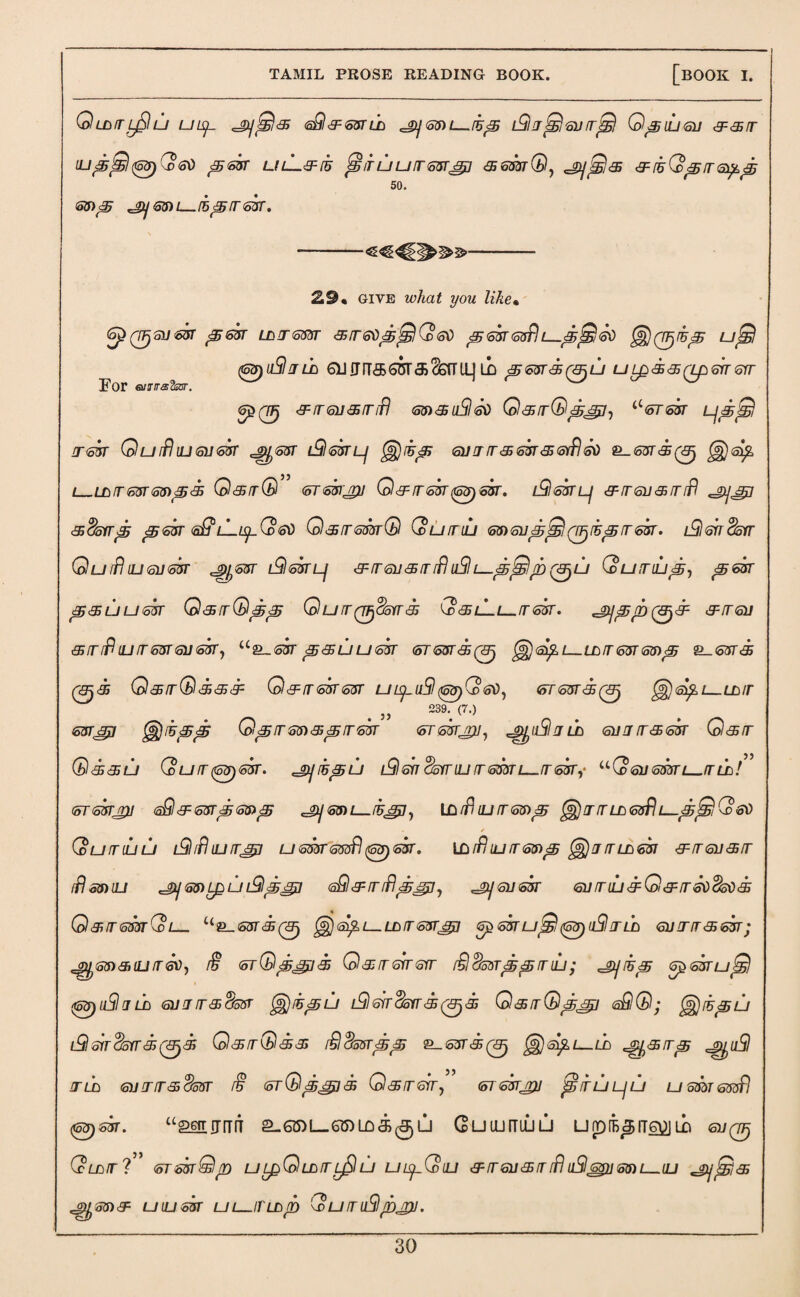 TAMIL PROSE READING BOOK. [BOOK I.
மொழிப் படி அதிக விசனம் அடைந்த பிரதிவாதி தெய்வ சகா
யத்தினாலே தன் பட்சந் தீர்ப்பானது கண்டு, அதிக சந்தோஷத்
50.
தை அடைந்தான்.
29. GIVE what you like.
ஒருவன் தன் மரண காலத்திலே தன்னிடத்தில் இருந்த பதி
னாயிரம் வராகன்களையும் தனக்குப் பழக்கமுள்ள
For வராகனை.
ஒரு சாவகாரி கையில் கொடுத்து, “என் புத்தி
ரன் பெரியவன் ஆன பின்பு இந்த வராகன்களில் உனக்கு இஷ்
டமானதைக் கொடு” என்று சொன்னான். பின்பு சாவகாரி அது
களைத் தன் வீட்டிலே கொண்டு போய் வைத்திருந்தான். பிள்ளை
பெரியவன் ஆன பின்பு சாவகாரியிடத்திற்குப் போய்த், தன்
தகப்பன் கொடுத்த பொருளைக் கேட்டான். அதற்குச் சாவ
காரியானவன், “உன் தகப்பன் எனக்கு இஷ்டமானதை உனக்
குக் கொடுக்கச் சொன்ன படியினாலே, எனக்கு இஷ்டமா
239. (7.)
னது இந்தத் தொகைதான்” என்று, ஆயிரம் வராகன் கொ
டுக்கப் போனான். அந்தப் பிள்ளையாண்டான், “வேண்டாம்!”
என்று விசனத்தை அடைந்து, மரியாதை இராமனிடத்திலே
போய்ப் பிரியாது பண்ணினான். மரியாதை இராமன் சாவகா
ரியை அழைப்பித்து விசாரித்து, அவன் வாய்ச்சொல்லைக்
கொண்டே “உனக்கு இஷ்டமானது ஒன்பதினாயிரம் வராகன்;
ஆகையால், நீ எடுத்துக் கொள்ள நினைத்தாய்; அந்த ஒன்பதி
னாயிரம் வராகனை இந்தப் பிள்ளைக்குக் கொடுத்து விடு; இந்தப்
பிள்ளைக்குக் கொடுக்க நினைத்த உனக்கு இஷ்டம் ஆகாத ஆயி
ரம் வராகனை நீ எடுத்துக் கொள்,” என்று தீர்ப்புப் பண்ணி
னான். “ஊரார் உடைமைக்குப் பேயாய்ப் பறந்தாலும் வரு
மோ?” என்கிற பழமொழிப் படியே சாவகாரியினுடைய அதிக
ஆசை பயன் படாமற் போயிற்று.
30